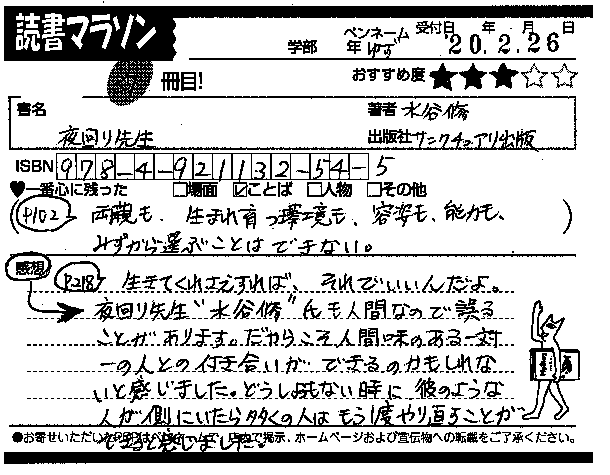 読書マラソン
冊目!
学部 年 ペンネーム ゆず 受付日 年 月 日
20.2.26
おすすめ度 ★★★☆☆
書名 夜回り先生
著者 水谷修
出版社 サンクチュアリ出版
ISBN 978-4-921132-54-5
♥一番心に残った □場面 ☑ことば □人物 □その他
(P102 両親も、生まれ育つ環境も、容姿も、能力も、
みずから選ぶことはできない。)
感想
P218 生きてくれさえすれば、それでいいんだよ。
夜回り先生“水谷修”氏も人間なので誤る
ことがあります。だからこそ人間味のある一対
一の人との付き合いができるのかもしれな
いと感じました。どうしようもない時に彼のような
人が側にいたら多くの人はもう1度やり直すことが
できると感じました。
●お寄せいただいた 店内で掲示、ホームページおよび宣伝物への転載をご了承ください。